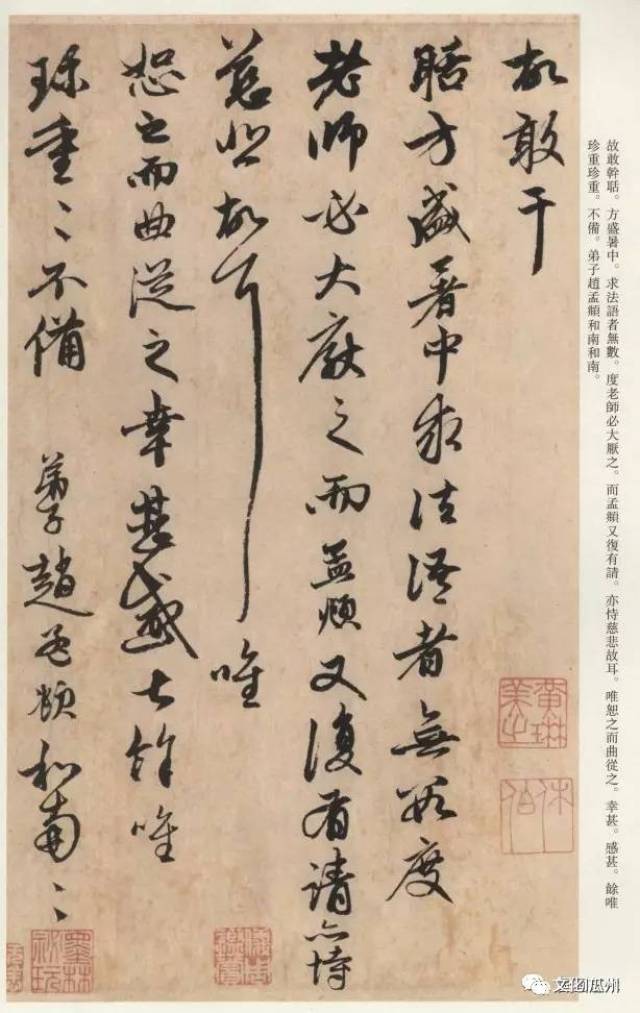 故敢干
聒方盛暑中求法语者無数度
老师必大厭之而孟頫又復有請亦恃
慈悲故耳唯
恕之而曲從之幸甚感甚餘唯
珎重〻不備 弟子趙孟頫和南〻
黄琳美之
休伯
故敢幹聒。方盛暑中。求法語者無數。度老師必大厭之。而孟頫又復有請。亦恃慈悲故耳。唯恕之而曲從之。幸甚。感甚。餘唯
珍重珍重。不備。弟子趙孟頫和南和南。
文图瓜州